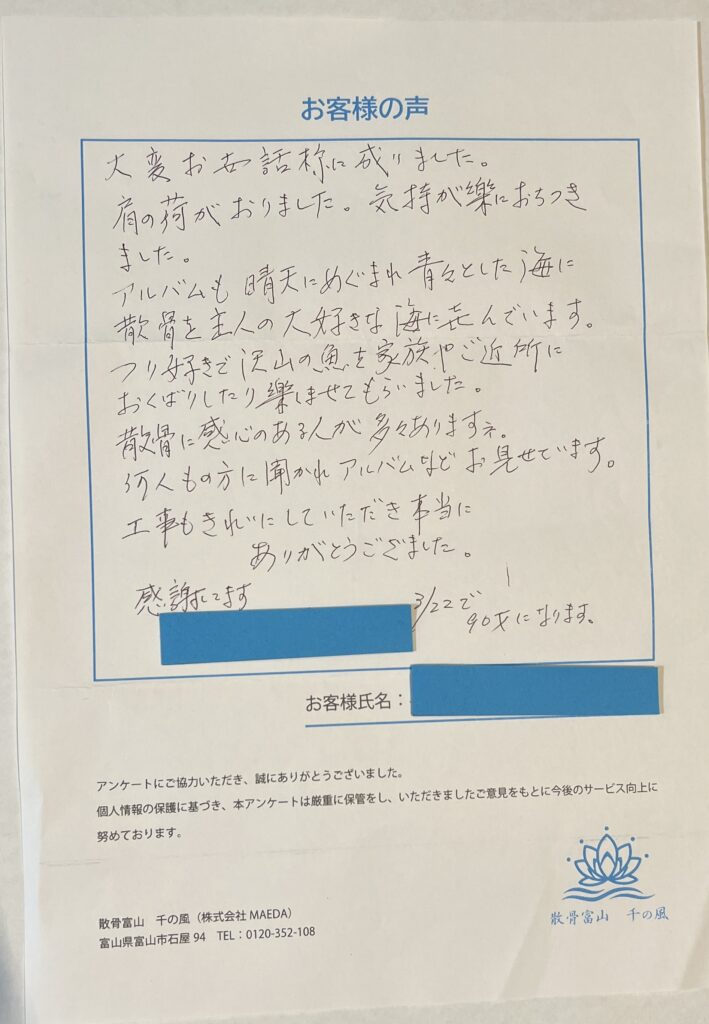 お客様の声
大変お世話様に成りました。
肩の荷がおりました。気持が樂におちつき
ました。
アルバムも 晴天にめぐまれ 青々とした海に
散骨を主人の大好きな海に㐂んでいます。
フリ好きで沢山の魚を家族やご近所に
おくばりしたり樂しませてもらいました。
散骨に感心のある人が多々ありますネ。
何人もの方に聞かれアルバムなどお見せています。
工事もきれいにしていただき本当に
ありがとうございました。
感謝してます
3/22で
90才になります。
お客様氏名：
アンケートにご協力いただき、誠にありがとうございました。
個人情報の保護に基づき、本アンケートは厳重に保管をし、いただきましたご意見をもとに今後のサービス向上に
努めております。
散骨富山　千の風
散骨富山　千の風（株式会社 MAEDA）
富山県富山市石屋 94　TEL：0120-352-108